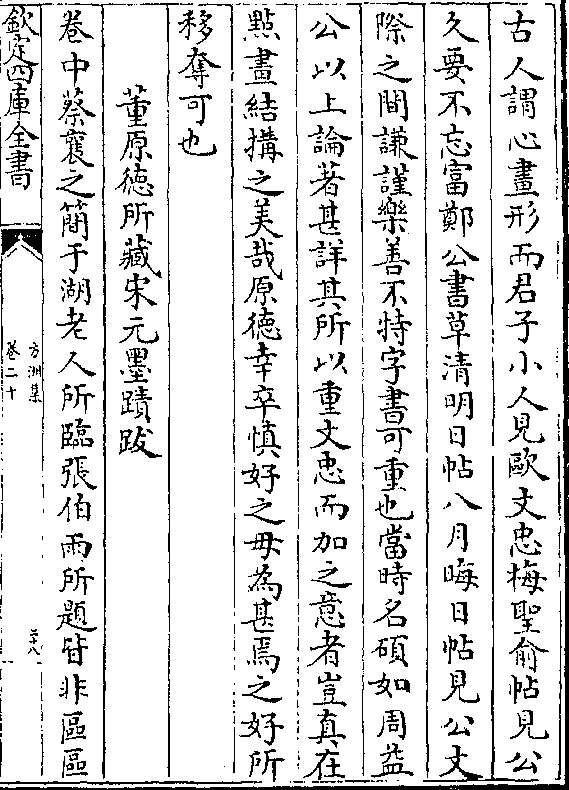 古人謂心畫形而君子小人見歐文忠梅聖俞帖見公
久要不忘富鄭公書草清明日帖八月晦日帖見公文
際之間謙謹樂善不特字書可重也當時名碩如周益
公以上論著甚詳其所以重文忠而加之意者豈真在
點畫結搆之美哉原徳幸卒慎好之毋為甚焉之好所
移奪可也
董原徳所藏宋元墨蹟跋
卷中蔡襄之簡于湖老人所臨張伯雨所題皆非區區
欽定四庫全書
方洲集
卷二十